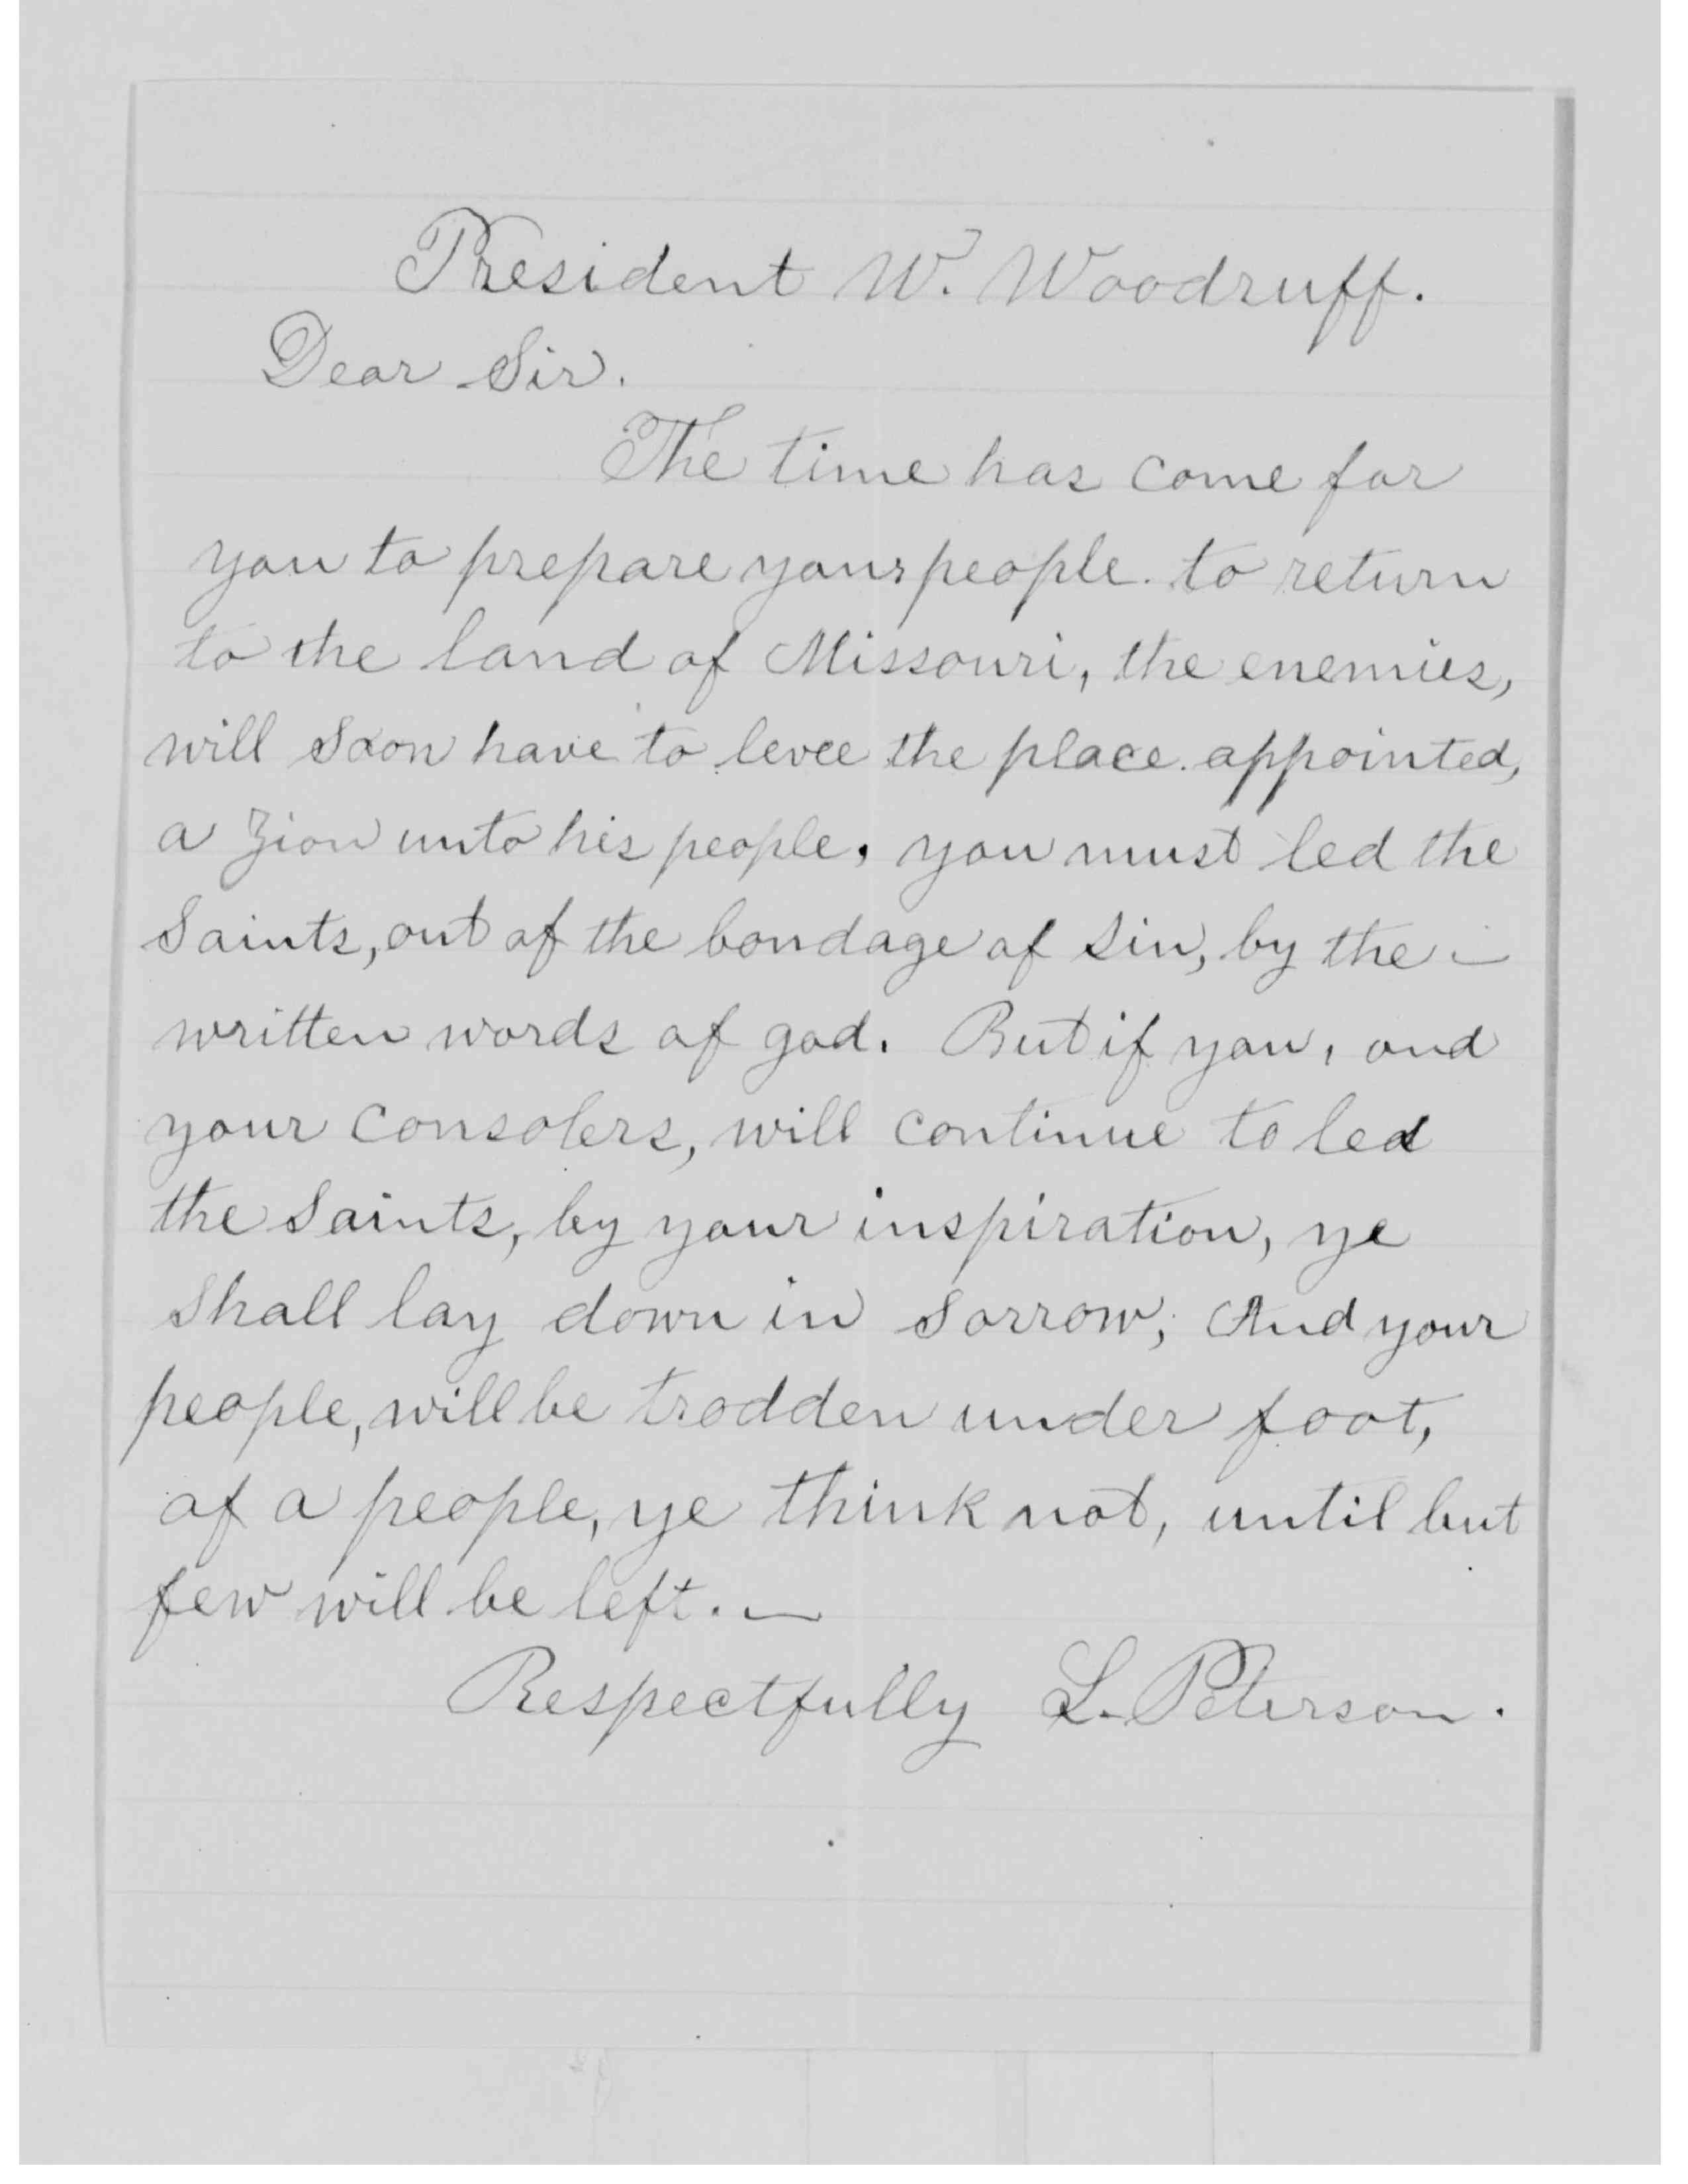 President W. Woodruff.
Dear Sir.
The time has come for
you to prepare your people. to return
to the land of Missouri, the enemies,
will soon have to levee the place. appointed,
a Zion unto his people. you must led the
Saints, out of the bondage of Sin, by the –
written words of god. But if you, and
your Consolers, will continue to led
the Saints, by your inspiration, ye
shall lay down in Sorrow; And your
people, will be trodden under foot,
of a people, ye think not, until but
few will be left. —
Respectfully L. Peterson.